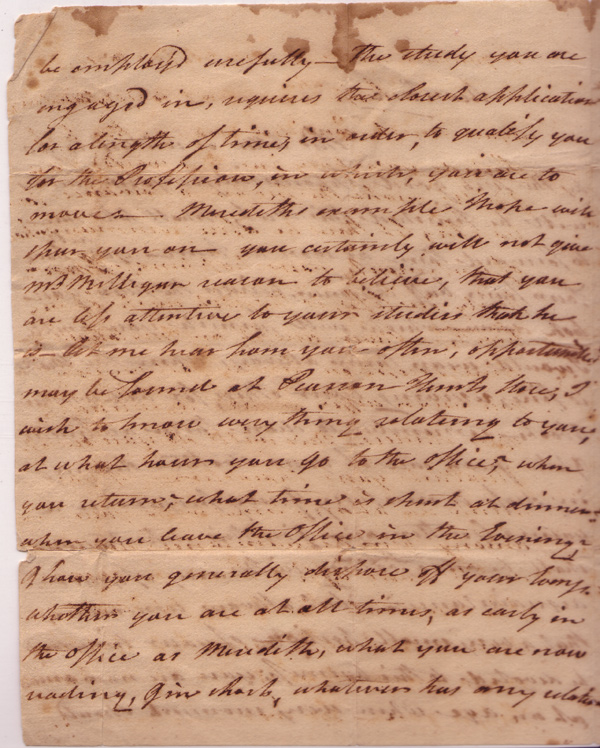 be employ'd usefully — The study you are
engaged in, requires the closest application
for a length of time, in order, to qualify you
for the Profession, in which, you are to
move — Meredith's example I hope will
spur you on — you certainly will not give
Mr Milligan reason to believe, that you
are less attentive to your studies than he
is — let me hear from you often, opportunities
may be found at Pearson Hunts Store, I
wish to know every thing relating to you,
at what hours you go to the office, when
you return, what time is spent at dinner
when you leave the Office in the Evening
& how you generally dispose of your Eveng.
whether you are at all times, as early in
the office as Meredith, what you are now
reading, & in short, whatever has any relation